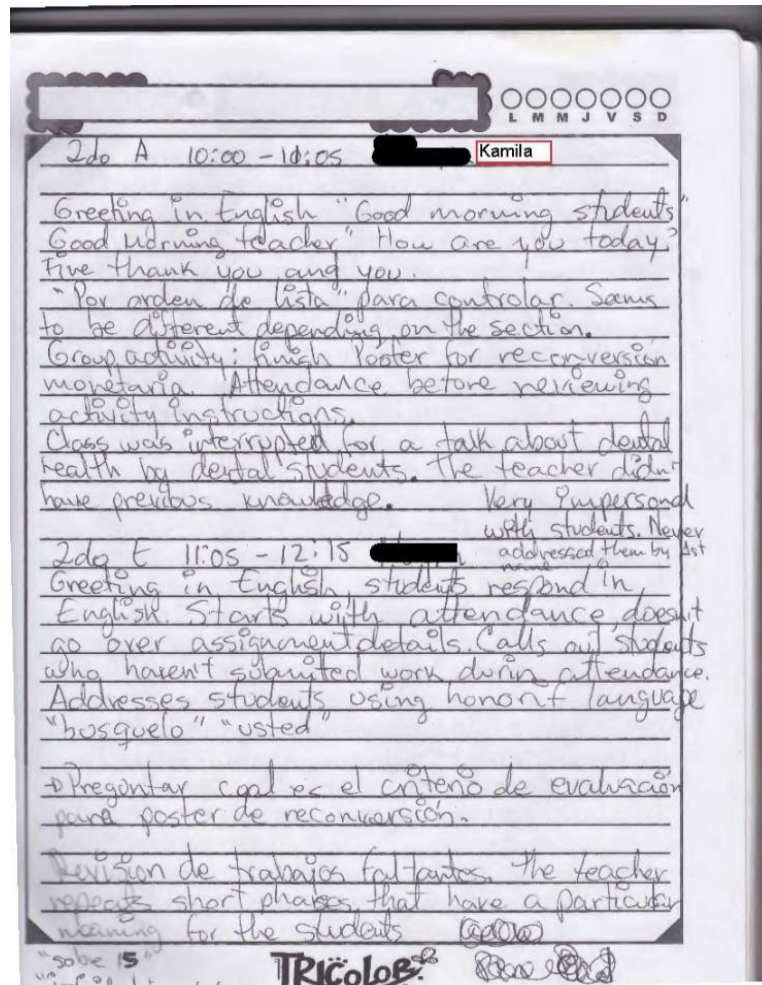 L M M J V S D
2do A 10:00 - 10:05 Kamila
Greeting in English "Good morning students"
Good Morning teacher" How are you today?
Fine thank you and you.
"Por orden de lista" para controlar. Seems
to be different depending on the section.
Group activity: finish Poster for reconversión
monetaria. Attendance before reviewing
activity instructions.
Class was interrupted for a talk about dental
health by dental students. The teacher didn'
have previous knowledge. Very impersonal
with students. Never
addressed them by 1st
name
2do E 11:05 - 12:15
Greeting in English, students respond in
English. Starts with attendance doesn't
go over assignment details. Calls out students
who haven't submited work durin attendance.
Addresses students using honorif language
"busquelo" "usted"
Preguntar cual es el criterio de evaluación
para poster de reconversión.
Revisión de trabajos faltantes. The teacher
repeats short phases that have a particular
meaning for the students
"sobe 15"
TRICOLOR